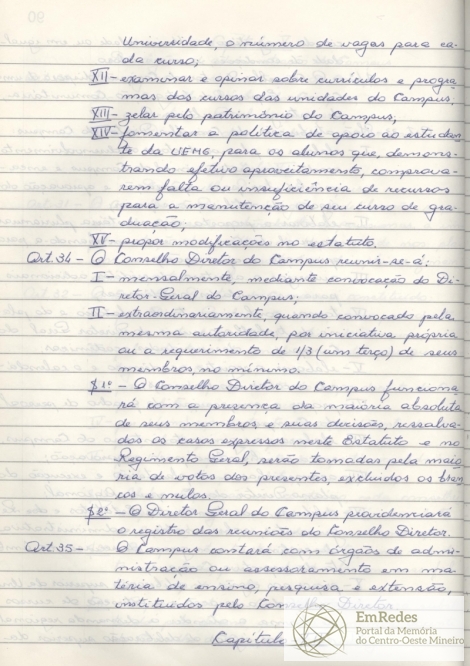 Universidade, o número de vagas para ca-
da curso;
XII - examinar e opinar sobre currículos e progra-
mas dos cursos das unidades do Campus;
XIII - zelar pelo patrimônio do Campus;
XIV - fomentar a política de apoio ao estudan-
te da UEMG, para os alunos que, demons-
trando efetivo aproveitamento, comprova-
rem falta ou insuficiência de recursos
para a manutenção de seu curso de gra-
duação;
XV - propor modificações no estatuto.
Art. 34 - O Conselho Diretor do Campus reunir-se-á:
I - mensalmente, mediante convocação do Di-
retor-Geral do Campus;
II - extraordinariamente, quando convocado pela
mesma autoridade, por iniciativa própria
ou a requerimento de 1/3 (um terço) de seus
membros, no mínimo.
§ 1º - O Conselho Diretor do Campus funciona-
rá com a presença da maioria absoluta
de seus membros e suas decisões, ressalva-
dos os casos expressos neste Estatuto e no
Regimento Geral, serão tomadas pela maio-
ria de votos dos presentes, excluídos os bran-
cos e nulos.
§ 2º - O Diretor Geral do Campus providenciará
o registro das reuniões do Conselho Diretor.
Art. 35 - O Campus contará com órgãos de admi-
nistração ou assessoramento em ma-
téria de ensino, pesquisa e extensão,
instituídos pelo Conselho Diretor.
Capítulo
EmRedes
Portal da Memória
do Centro-Oeste Mineiro